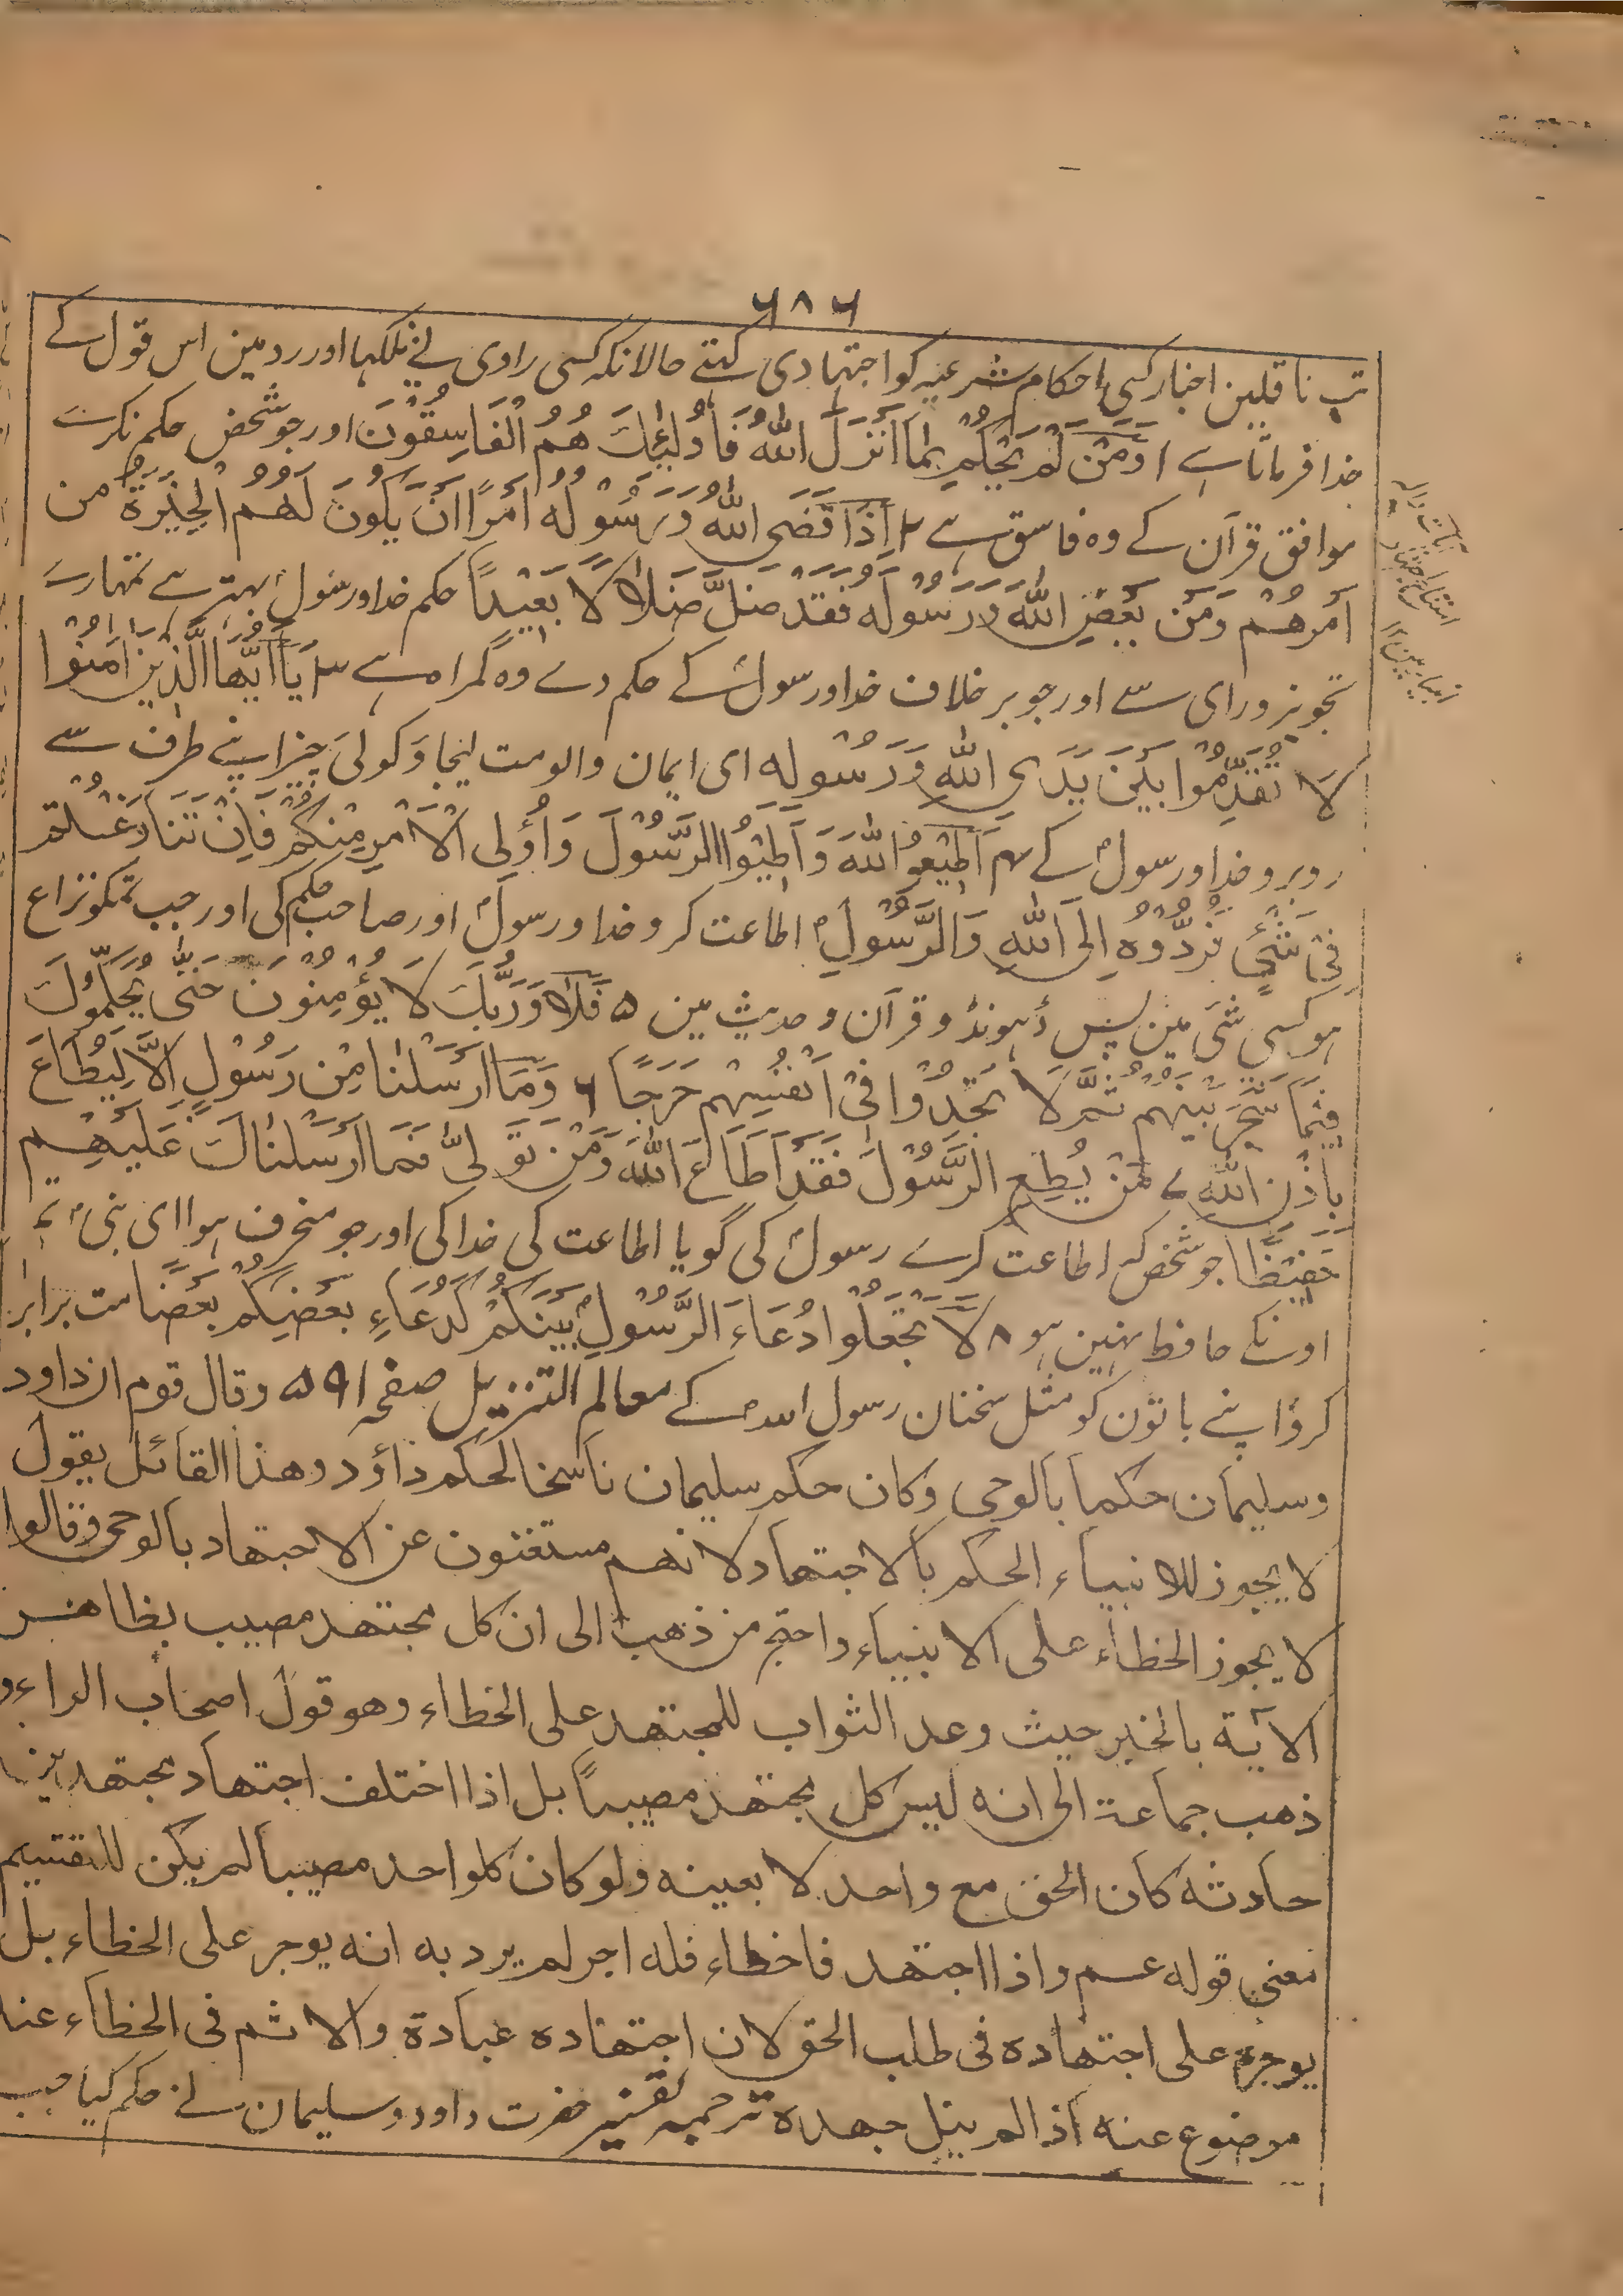 ۶۸۶
تب ناقلین اخبار کسی احکام شرعیہ کو اجتہادی کہتے حالانکہ کسی راوی نے نلکہا اور رد مین اس قول کے
خدا فرماتا ہے ۱ وَمَنْ لَمْ يَحْكُمْ بِمَا أَنْزَلَ اللهُ فَأُولٰئِكَ هُمُ الْفَاسِقُوْنَ اور جو شخص حکم نکرے
موافق قرآن کے وہ فاسق ہے ۲ اِذَا قَضَى اللهُ وَرَسُوْلُهُ اَمْرًا اَنْ يَكُونَ لَهُمُ الْخِيَرَةُ مِن
اَمْرِهُمْ وَمَنْ يَعْصِ اللهَ وَرَسُوْلَهُ فَقَدْ ضَلَّ ضَلَالًا بَعِيْدًا حکم خدا و رسول بہتر ہے تمہارے
تجویز و رای سے اور جو بر خلاف خدا و رسول کے حکم دے وہ گمراہ ہے ۳ يَا اَيُّهَا الَّذِيْنَ اٰمَنُوْا
لَا تُقَدِّمُوْا بَيْنَ يَدَيِ اللهِ وَرَسُوْلِهِ ای ایمان والو مت لیجاؤ کوئی چیز اپنے طرف سے
روبرو خدا و رسول کے ۴ اَطِيْعُوا اللهَ وَاَطِيْعُوا الرَّسُوْلَ وَاُولِى الْاَمْرِ مِنْكُمْ فَاِنْ تَنَازَعْتُمْ
فِيْ شَيْءٍ فَرُدُّوْهُ اِلَى اللهِ وَالرَّسُوْلِ اطاعت کرو خدا و رسول اور صاحب حکم کی اور جب تمکو نزاع
ہو کسی شی مین پس ڈہونڈو قرآن و حدیث مین ۵ فَلَا وَرَبِّكَ لَا يُؤْمِنُوْنَ حَتّٰى يُحَكِّمُوْكَ
فِيْمَا شَجَرَ بَيْنَهُمْ ثُمَّ لَا يَجِدُوْا فِيْ اَنْفُسِهِمْ حَرَجًا ۶ وَمَا اَرْسَلْنَا مِنْ رَسُوْلٍ اِلَّا لِيُطَاعَ
بِاِذْنِ اللهِ ۷ مَنْ يُطِعِ الرَّسُوْلَ فَقَدْ اَطَاعَ اللهَ وَمَنْ تَوَلّٰى فَمَا اَرْسَلْنَاكَ عَلَيْهِمْ
حَفِيْظًا جو شخص کہ اطاعت کرے رسول کی گویا اطاعت کی خدا کی اور جو منحرف ہوا ای نبی تم
اونکے حافظ نہین ہو ۸ لَا تَجْعَلُوا دُعَاءَ الرَّسُوْلِ بَيْنَكُمْ كَدُعَاءِ بَعْضِكُمْ بَعْضًا مت برابر
کرو اپنے باتون کو مثل سخنان رسول اللہ کے معالم التنزیل صفحہ ۵۹۱ وقال قوم ان داود
وسلیمان حكما بالوحی وكان حكم سلیمان ناسخا لحكم داؤد وهذا القائل يقول
لا يجوز للانبياء الحكم بالاجتهاد لانهم مستغنون عن الاجتهاد بالوحی وقالوا
لا يجوز الخطاء على الانبياء واحتج من ذهب الى ان كل مجتهد مصيب بظاهر
الآية بالخبر حيث وعد الثواب للمجتهد على الخطاء وهو قول اصحاب الراء و
ذهب جماعة الى انه ليس كل مجتهد مصيباً بل اذا اختلف اجتهاد مجتهدين
حادثه كان الحق مع واحد لا بعينه ولو كان كلواحد مصيبا لم يكن للتقسيم
معنى قوله عم واذا اجتهد فاخطاء فله اجر لم يرد به انه يوجر على الخطاء بل
يوجر على اجتهاده فى طلب الحق لان اجتهاده عبادة والاثم فى الخطاء عنه
موضوع عنه اذا لم ينل جهده ترجمہ تفسیر حضرت داود و سلیمان نے حکم کیا جب